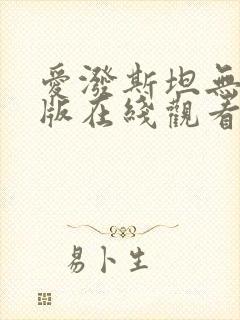 愛潑斯坦無
版在綫觀看
易卜生